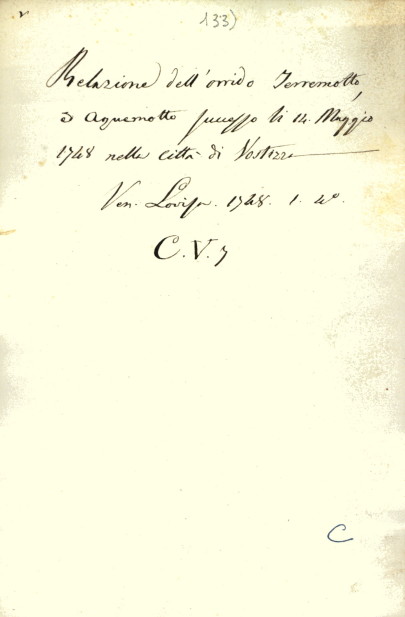 133)
Relazione dell'orrido Terremotto,
e Aquemotto successo li 14. Maggio
1748 nella città di Vostizza
Ven. Lovisa. 1748. 1. 4º.
C.V.7
C